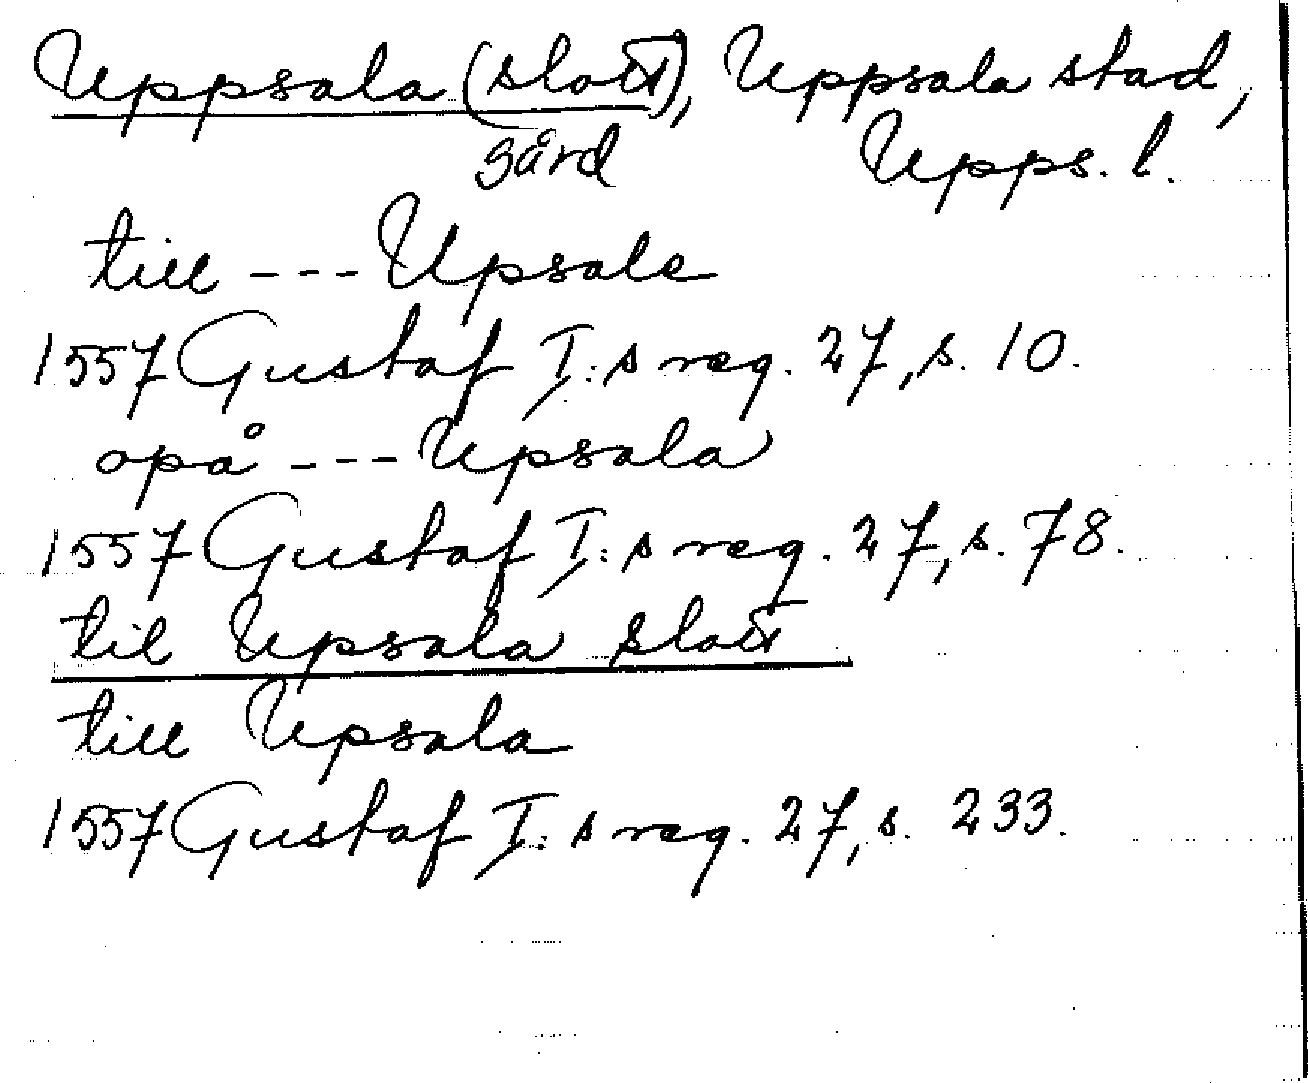 Uppsala (slott), Uppsala stad,
gård Upps. l.
till --- Upsale
1557 Gustaf I:s reg. 27, s. 10.
opå --- Upsala
1557 Gustaf I:s reg. 27, s. 78.
til Upsala slott
till Upsala
1557 Gustaf I:s reg. 27, s. 233.